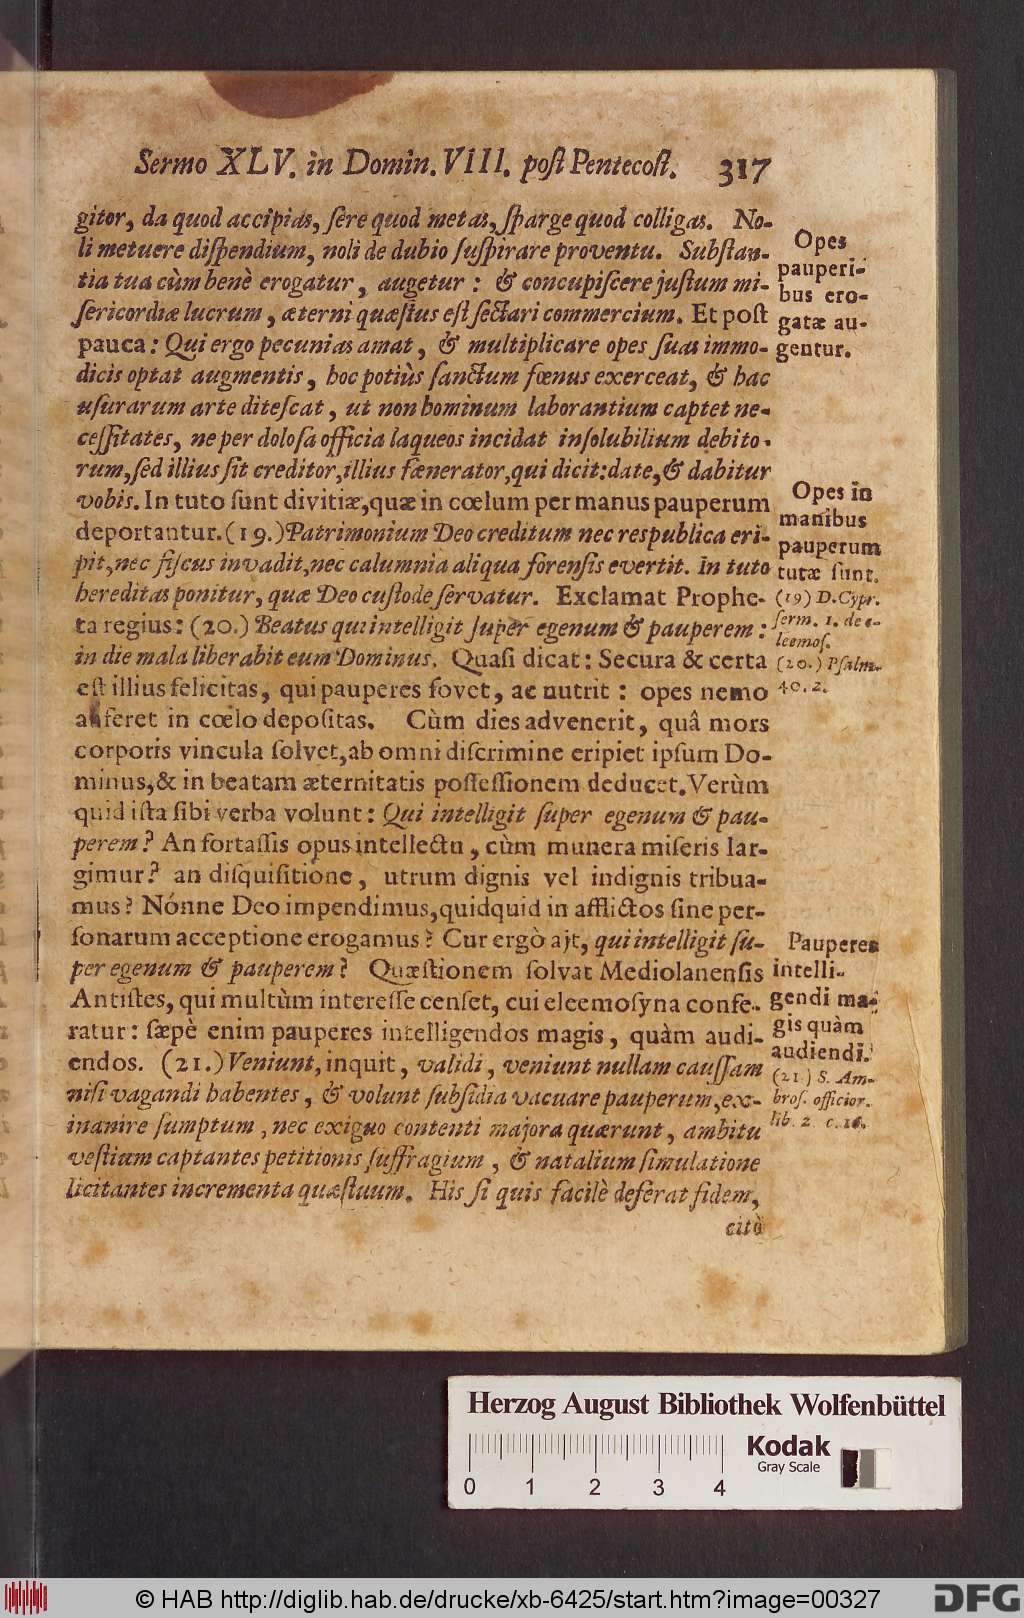 Sermo XLV. in Domin. VIII. poſt Pentecoſt. 317
gitor, da quod accipias, ſere quod metas, ſparge quod colligas. No-
li metuere diſpendium, noli de dubio ſuſpirare proventu. Subſtan-
tia tua cùm benè erogatur, augetur: & concupiſcere juſtum mi-
ſericordiæ lucrum, æterni quæſtus eſt ſectari commercium. Et poſt
pauca: Qui ergo pecunias amat, & multiplicare opes ſuas immo-
dicis optat augmentis, hoc potiùs ſanctum fœnus exerceat, & hac
uſurarum arte diteſcat, ut non hominum laborantium captet ne-
ceſſitates, ne per doloſa officia laqueos incidat inſolubilium debito-
rum, ſed illius ſit creditor, illius fœnerator, qui dicit: date, & dabitur
vobis. In tuto ſunt divitiæ, quæ in cœlum per manus pauperum
deportantur. (19.) Patrimonium Deo creditum nec respublica eri-
pit, nec fiſcus invadit, nec calumnia aliqua forenſis evertit. In tuto
hereditas ponitur, quæ Deo cuſtode ſervatur. Exclamat Prophe-
ta regius: (20.) Beatus qui intelligit ſuper egenum & pauperem:
in die mala liberabit eum Dominus. Quaſi dicat: Secura & certa
eſt illius felicitas, qui pauperes fovet, ac nutrit: opes nemo
auferet in cœlo depoſitas. Cùm dies advenerit, quâ mors
corporis vincula ſolvet, ab omni diſcrimine eripiet ipſum Do-
minus, & in beatam æternitatis poſſeſſionem deducet. Verùm
quid iſta ſibi verba volunt: Qui intelligit ſuper egenum & pau-
perem? An fortaſſis opus intellectu, cùm munera miſeris lar-
gimur? an diſquiſitione, utrum dignis vel indignis tribua-
mus? Nónne Deo impendimus, quidquid in afflictos ſine per-
ſonarum acceptione erogamus? Cur ergò ait, qui intelligit ſu-
per egenum & pauperem? Quæſtionem ſolvat Mediolanenſis
Antiſtes, qui multùm intereſſe cenſet, cui eleemoſyna confe-
ratur: ſæpè enim pauperes intelligendos magis, quàm audi-
endos. (21.) Veniunt, inquit, validi, veniunt nullam cauſſam
niſi vagandi habentes, & volunt ſubſidia vacuare pauperum, ex-
inanire ſumptum, nec exiguo contenti majora quærunt, ambitu
veſtium captantes petitionis ſuffragium, & natalium ſimulatione
licitantes incrementa quæſtuum. His ſi quis facilè deferat fidem,
citò
Opes
pauperi-
bus ero-
gatæ au-
gentur.
Opes in
manibus
pauperum
tutæ ſunt.
(19) D. Cypr.
ſerm. 1. de e-
leemoſ.
(20.) Pſalm.
40. 2.
Pauperes
intelli-
gendi ma-
gis quàm
audiendi.
(21) S. Am-
broſ. officior.
lib. 2. c. 16.
Herzog August Bibliothek Wolfenbüttel
Kodak
Gray Scale
0 1 2 3 4
© HAB http://diglib.hab.de/drucke/xb-6425/start.htm?image=00327
DFG